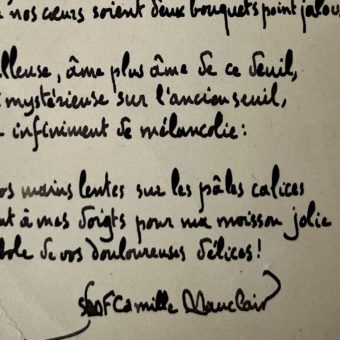 nos cœurs soient deux bouquets point jalou
lleuse, âme plus âme de ce deuil,
mystérieuse sur l'ancien seuil,
infiniment de mélancolie :
os mains lentes sur les pâles calices
nt à mes doigts pour ma moisson jolie
bole de vos douloureuses délices !
Camille Mauclair